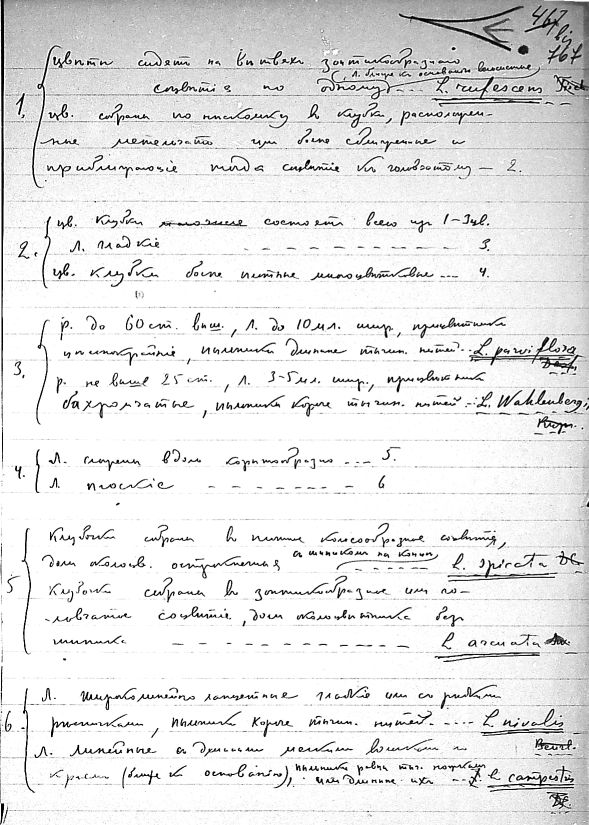 467
bis
767
Цветы сидят на ветвях зонтикообразнаго
(л. ближе к основанию волосистые
1. соцветія по одному ... L. rufescens
цв. собраны по нискольку в клубки, расположен-
ные метельчато или более сближенные и
приближающіе тогда соцветіе к головчатому — 2.
2. цв. клубки состоят всего из 1-3 цв.
л. гладкіе - - - - - - - 3.
цв. клубки более плотные многоцветковые ... 4.
3. р. до 60 ст. выш., л. до 10 мл. шир., прицветники
цельнокрайніе, пыльники длиннее тычин. нитей .. L. parviflora
Desf.
р. не выше 25 ст., л. 3-5 мл. шир., прицветники
бахромчатые, пыльники короче тычин. нитей .. L. Wahlenbergii
Rupr.
4. л. сложены вдоль корытообразно .... 5.
л. плоскіе - - - - - - 6
5 Клубочки собраны в колосообразное соцветіе,
доли околоцв. остроконечныя с шипиком на конце - - - - L. spicata DC
Клубочки собраны в зонтикообразное или го-
-ловчатое соцветіе, доли околоцветника без
шипика - - - - - - - L. arcuata
6. л. широколинейно ланцетные гладкіе или с редкими
ресничками, пыльники короче тычин. нитей. .... L. nivalis
Beurl.
л. линейные с длинными мягкими волосками по
краям (ближе к основанію), пыльники равны тыч. ... L. campestris
или длиннее их
DC